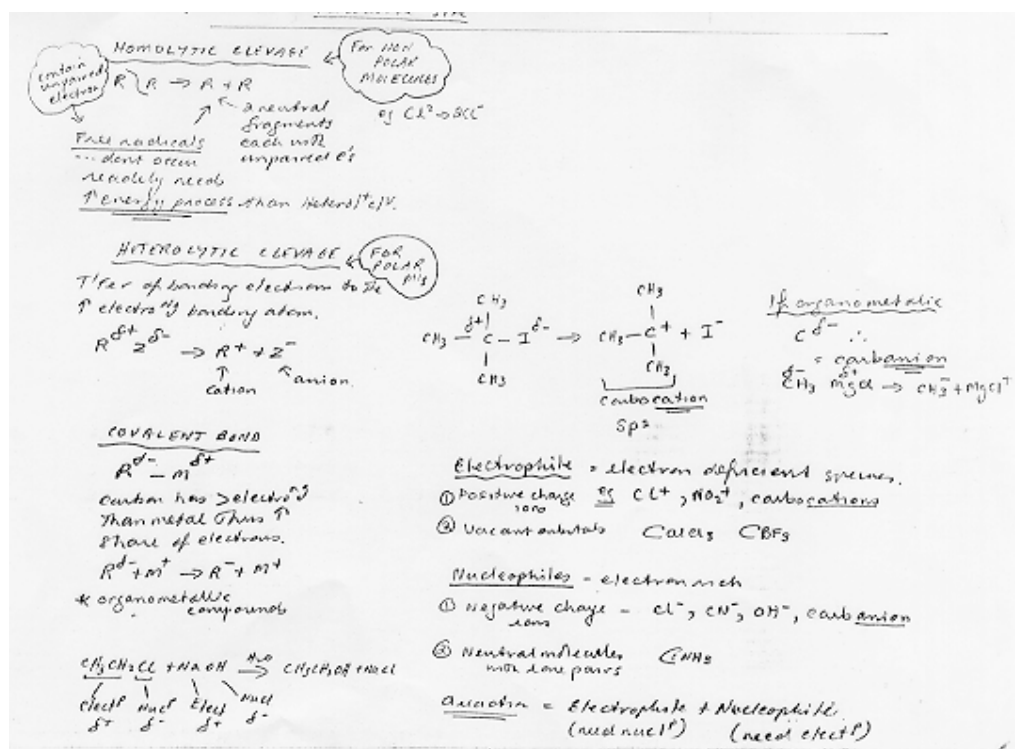 HOMOLYTIC CLEVAGE
For NON
POLAR
MOLECULES
contain
unpaired
electron
R R → R + R
eg Cl² → 2Cl⁻
2 neutral
fragments
each with
unpaired e's
Free radicals
... dont occur
readely needs
↑ energy process than Heterol
HETEROLYTIC CLEVAGE
FOR
POLAR
T'fer of bonding electrons to the
↑ electro bonding atom.
R δ+ Z δ- → R⁺ + Z⁻
cation
anion
CH3
CH3 – C δ+ – I δ- → CH3 – C⁺ + I⁻
CH3
CH3
CH3
carbocation
sp²
If organometalic
C δ- ∴
= carbanion
δ- δ+
CH3 MgCl → CH3⁻ + MgCl⁺
COVALENT BOND
R δ- – M δ+
carbon has > electro
Than metal Thus ↑
share of electrons.
R δ- + M⁺ → R⁻ + M⁺
* organometallic
compounds
CH3CH2Cl + NaOH H2O → CH3CH2OH + NaCl
elect^p nucl^p Elect nucl
δ+ δ- δ+ δ-
Electrophile = electron deficient species.
① Positive charge eg Cl⁺, NO2⁺, carbocations
ions
② Vacant orbitals BF3
Nucleophiles – electron rich
① Negative charge – Cl⁻, CN⁻, OH⁻, carbanion
ions
② Neutral molecules NH3
with lone pairs
= Electrophile + Nucleophile
(need nucl^p) (need elect^p)